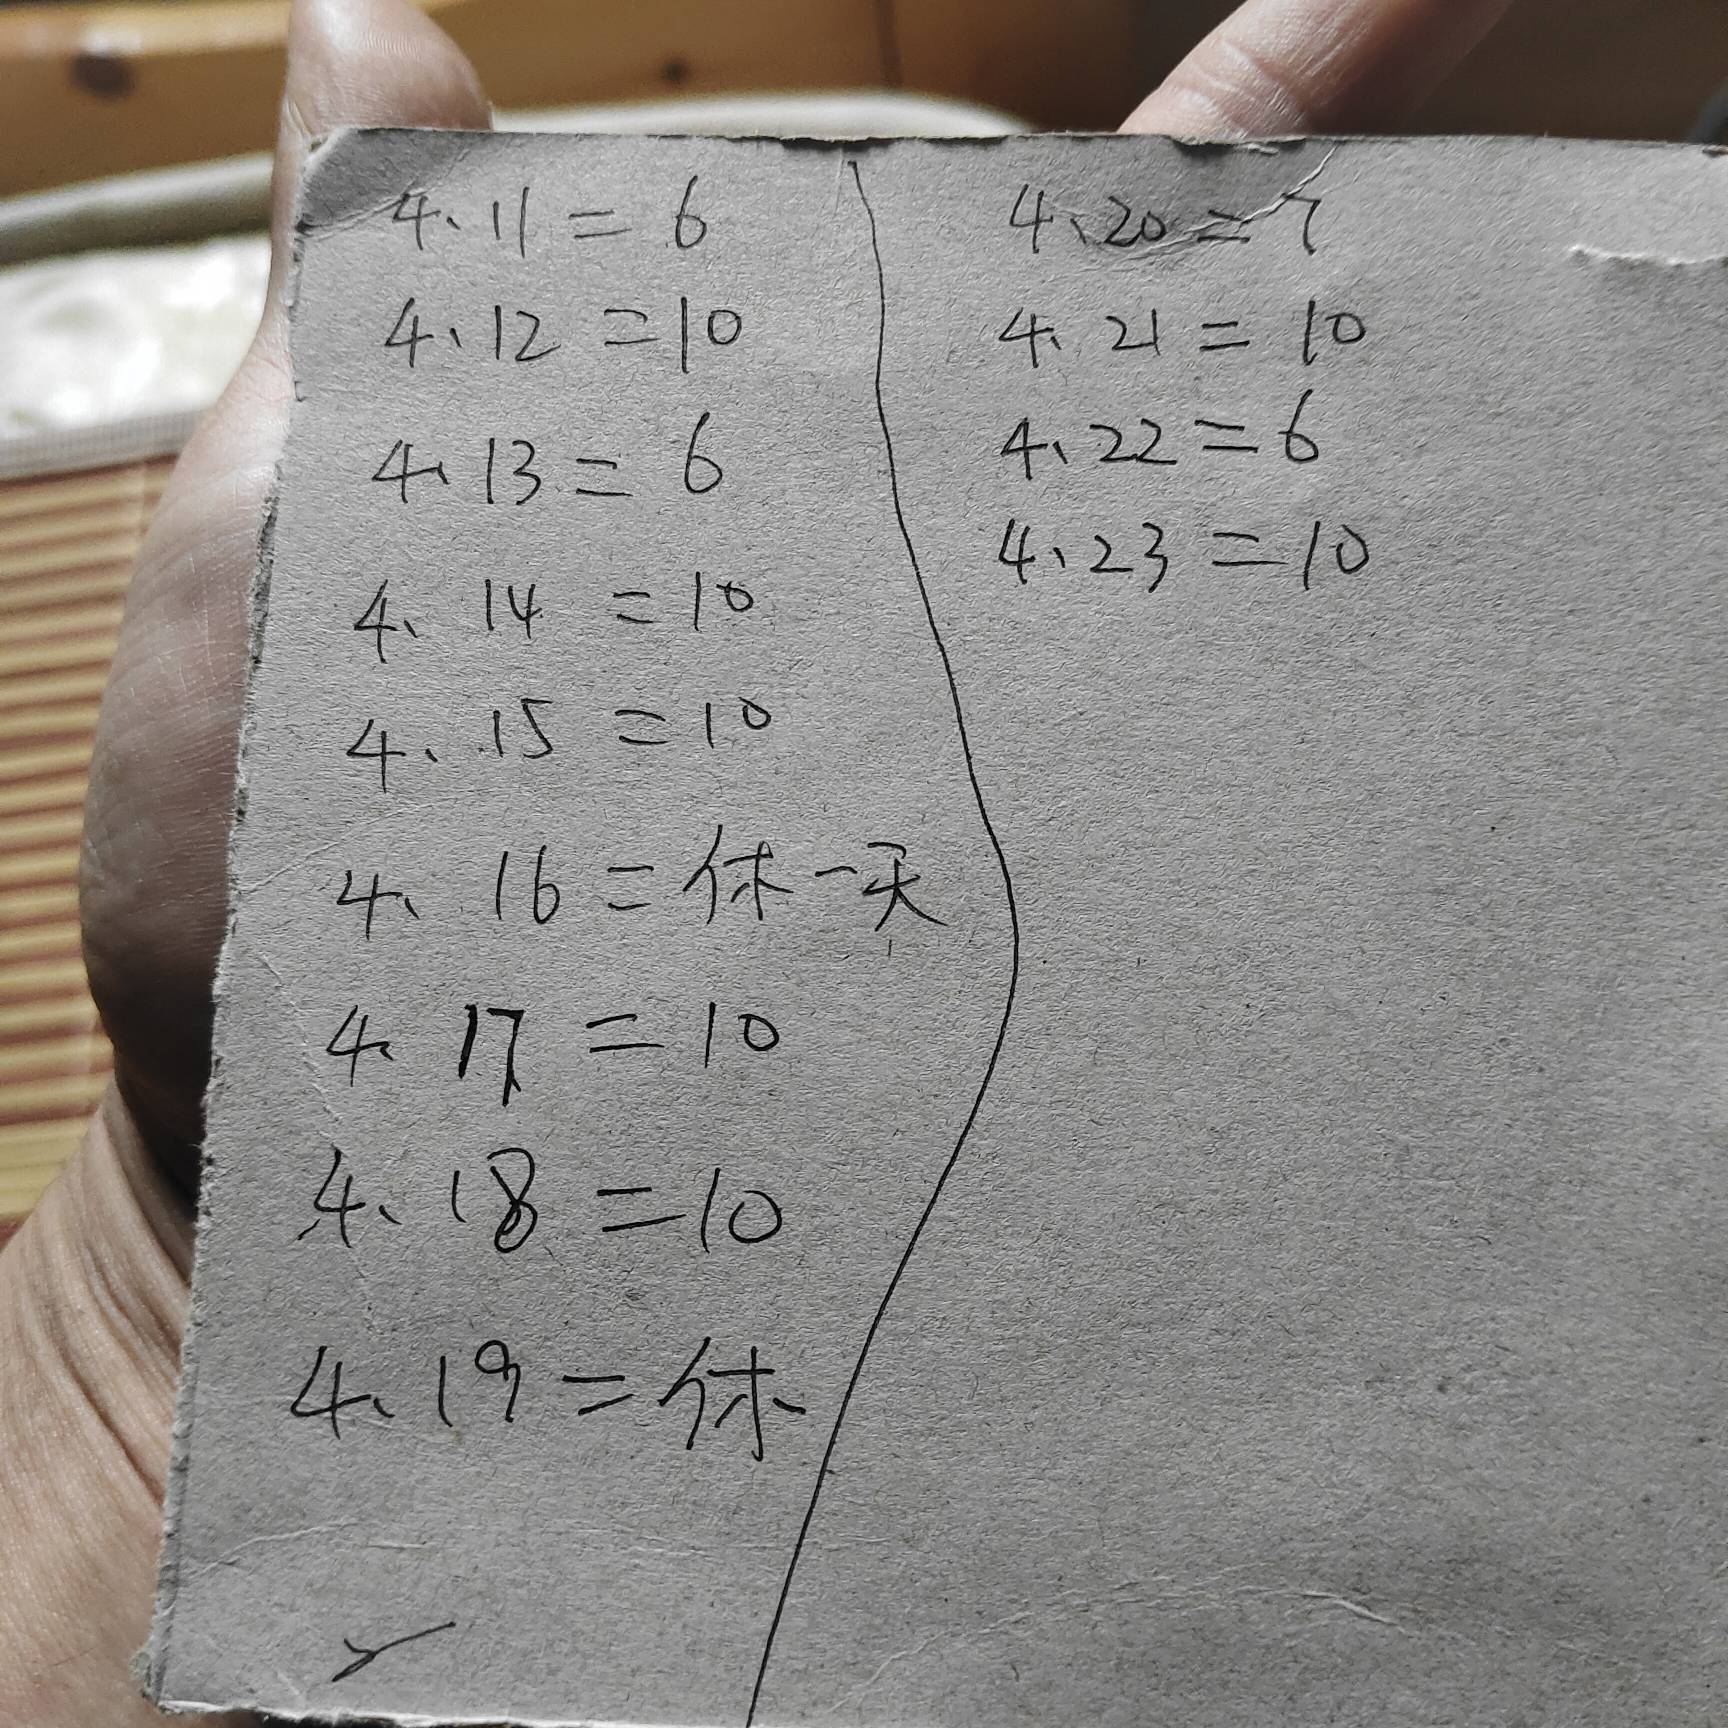 4、11=6
4、12=10
4、13=6
4、14=10
4、15=10
4、16=休一天
4、17=10
4、18=10
4、19=休
4、20=7
4、21=10
4、22=6
4、23=10